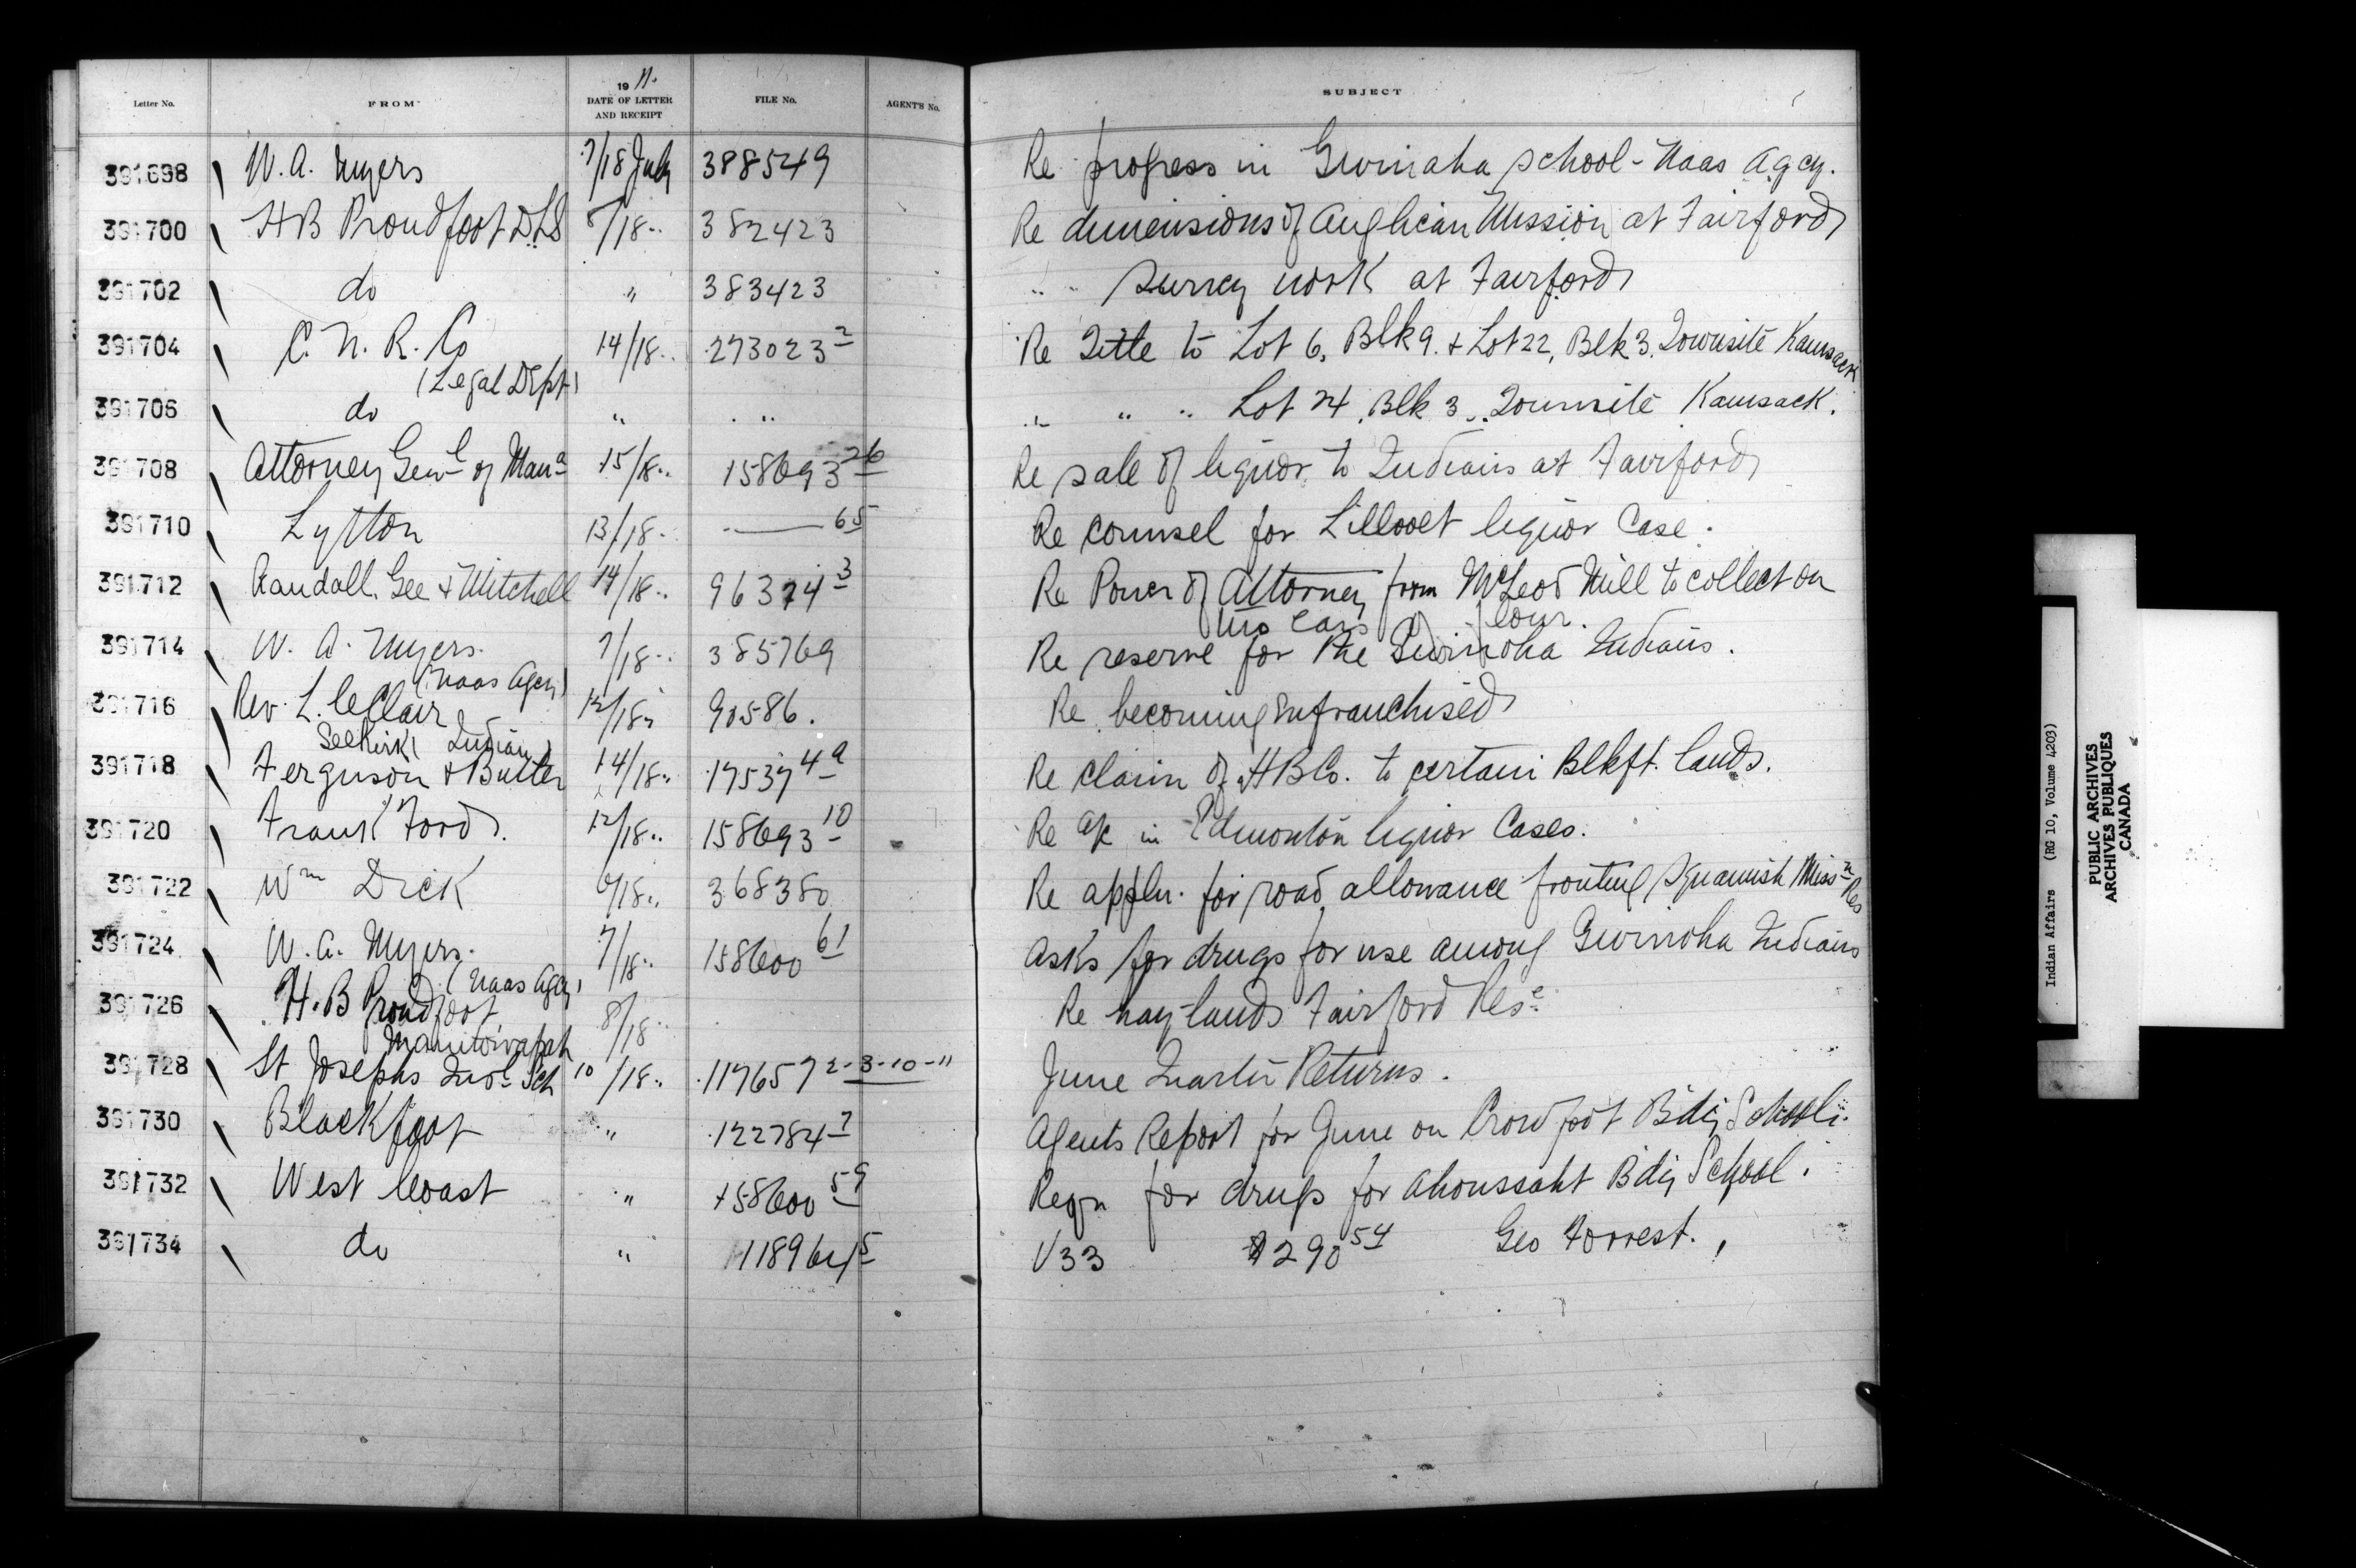 Letter No. FROM 1911. DATE OF LETTER AND RECEIPT FILE No. AGENT'S No. SUBJECT
391698 W. A. Myers 7/18 July 388549 Re progress in Gwinaha school - Naas Agcy.
391700 H B Proudfoot D.L.S 8/18 " 382423 Re dimensions of Anglican Mission at Fairford
391702 do " 383423 " " Survey work at Fairford
391704 C. N. R. Co 14/18 " 273023 2 Re Title to Lot 6, Blk 9. & Lot 22, Blk 3. Townsite Kamsack
(Legal Dept)
391706 do " " " " " Lot 24, Blk 3, Townsite Kamsack.
391708 Attorney Genl of Mana 15/18 " 158693 26 Re sale of liquor to Indians at Fairford
391710 Lytton 13/18 " — 65 Re counsel for Lillooet liquor Case.
391712 Randall, Gee & Mitchell 14/18 " 96374 3 Re Power of Attorney from McLeod Mill to collect on
two cars of flour.
391714 W. A. Myers. 7/18 " 385769 Re reserve for the Gwinoha Indians.
(Naas Agcy)
391716 Rev. L. leClair 12/18 " 90586. Re becoming enfranchised
Selkirk Indian
391718 Ferguson & Butler 14/18 " 175374 Re claim of H B Co. to certain Blkft. lands.
391720 Frank Ford. 12/18 " 158693 10 Re a/c in Edmonton liquor Cases.
391722 Wm Dick 6/18 " 368380 Re appln. for road allowance fronting Squamish Missn Res
391724 W. A. Myers. 7/18 " 158600 61 Asks for drugs for use among Gwinoha Indians
(Naas Agcy)
391726 H. B Proudfoot 8/18 " Re hay lands Fairford Rese
Manitowapah
391728 St Josephs Indl Sch 10/18 " 117657 2-3-10-11 June Quarter Returns.
391730 Blackfoot " 122784 7 Agents Report for June on Crowfoot Bdg School.
391732 West Coast " 158600 59 Reqn for drugs for Ahoussaht Bdg School.
391734 do " 118964 5 V33 $290 54 Geo Forrest.
Indian Affairs (RG 10, Volume 4203)
PUBLIC ARCHIVES
ARCHIVES PUBLIQUES
CANADA